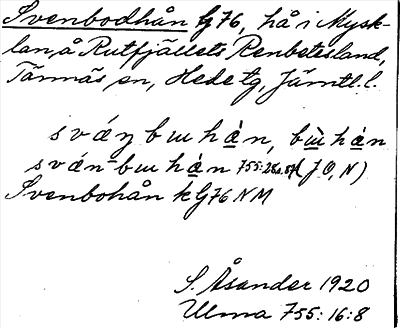 Svenbodhån G76, hå i Mysk-
lan, å Rutfjällets Renbetesland,
Tännäs sn, Hede tg, Jämtl. l.
sváŋ bɯ hàn, bɯ̀ hàn
sván-bɯ hàn 755: (JÖ, N)
Svenbohån k G76 NM
S. Åsander 1920
Ulma 755:16:8